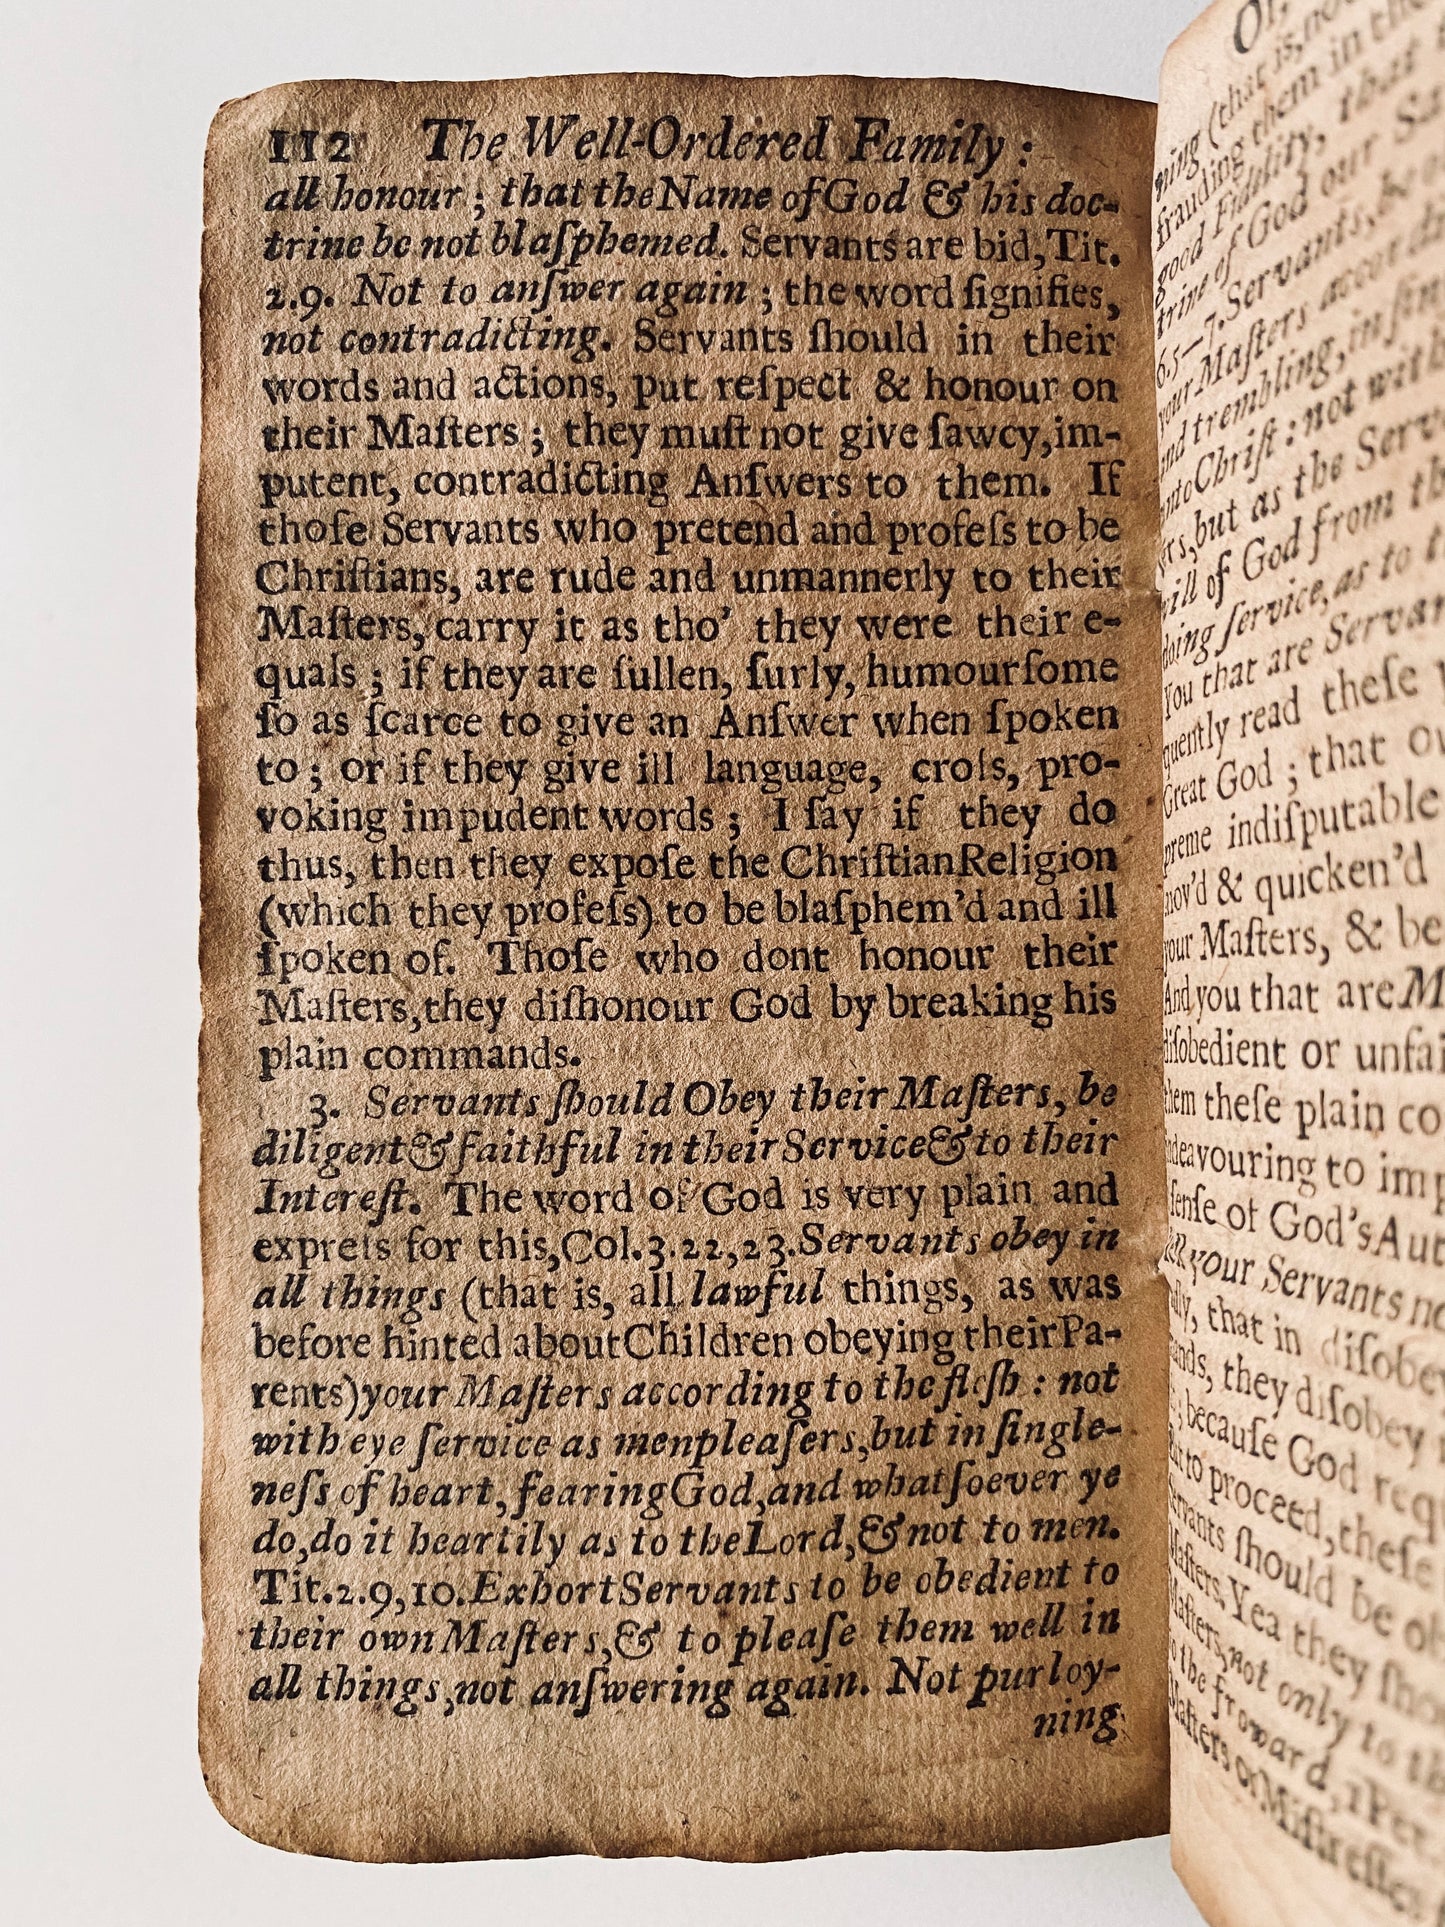 112 The Well-Ordered Family :
all honour ; that the Name of God & his doc-
trine be not blaſphemed. Servants are bid, Tit.
2.9. Not to anſwer again ; the word ſignifies,
not contradicting. Servants ſhould in their
words and actions, put reſpect & honour on
their Maſters ; they muſt not give ſawcy, im-
putent, contradicting Anſwers to them. If
thoſe Servants who pretend and profeſs to be
Chriſtians, are rude and unmannerly to their
Maſters, carry it as tho' they were their e-
quals ; if they are ſullen, ſurly, humourſome
ſo as ſcarce to give an Anſwer when ſpoken
to ; or if they give ill language, croſs, pro-
voking impudent words ; I ſay if they do
thus, then they expoſe the Chriſtian Religion
(which they profeſs) to be blaſphem'd and ill
ſpoken of. Thoſe who dont honour their
Maſters, they diſhonour God by breaking his
plain commands.
3. Servants ſhould Obey their Maſters, be
diligent & faithful in their Service & to their
Intereſt. The word of God is very plain and
expreſs for this, Col. 3. 22, 23. Servants obey in
all things (that is, all lawful things, as was
before hinted about Children obeying their Pa-
rents) your Maſters according to the fleſh : not
with eye ſervice as menpleaſers, but in ſingle-
neſs of heart, fearing God, and whatſoever ye
do, do it heartily as to the Lord, & not to men.
Tit. 2. 9, 10. Exhort Servants to be obedient to
their own Maſters, & to pleaſe them well in
all things, not anſwering again. Not purloy-
ning
ning (that is, no
frauding them in the
good Fidelity, that
trine of God our Sa
6. 5—7. Servants, be
your Maſters accor
and trembling, in ſin
unto Chriſt : not with
but as the Serv
will of God from th
doing ſervice, as to t
You that are Servan
quently read theſe
Great God ; that o
preme indiſputable
mov'd & quicken'd
your Maſters, & be
And you that are M
diſobedient or unfai
them theſe plain co
endeavouring to imp
ſenſe of God's Aut
tell your Servants no
that in diſobey
they diſobey
becauſe God requ
But to proceed, theſe
Servants ſhould be ob
Maſters. Yea they ſho
Maſters, not only to th
to the froward, 1 Pet.
Maſters or Miſtreſſes